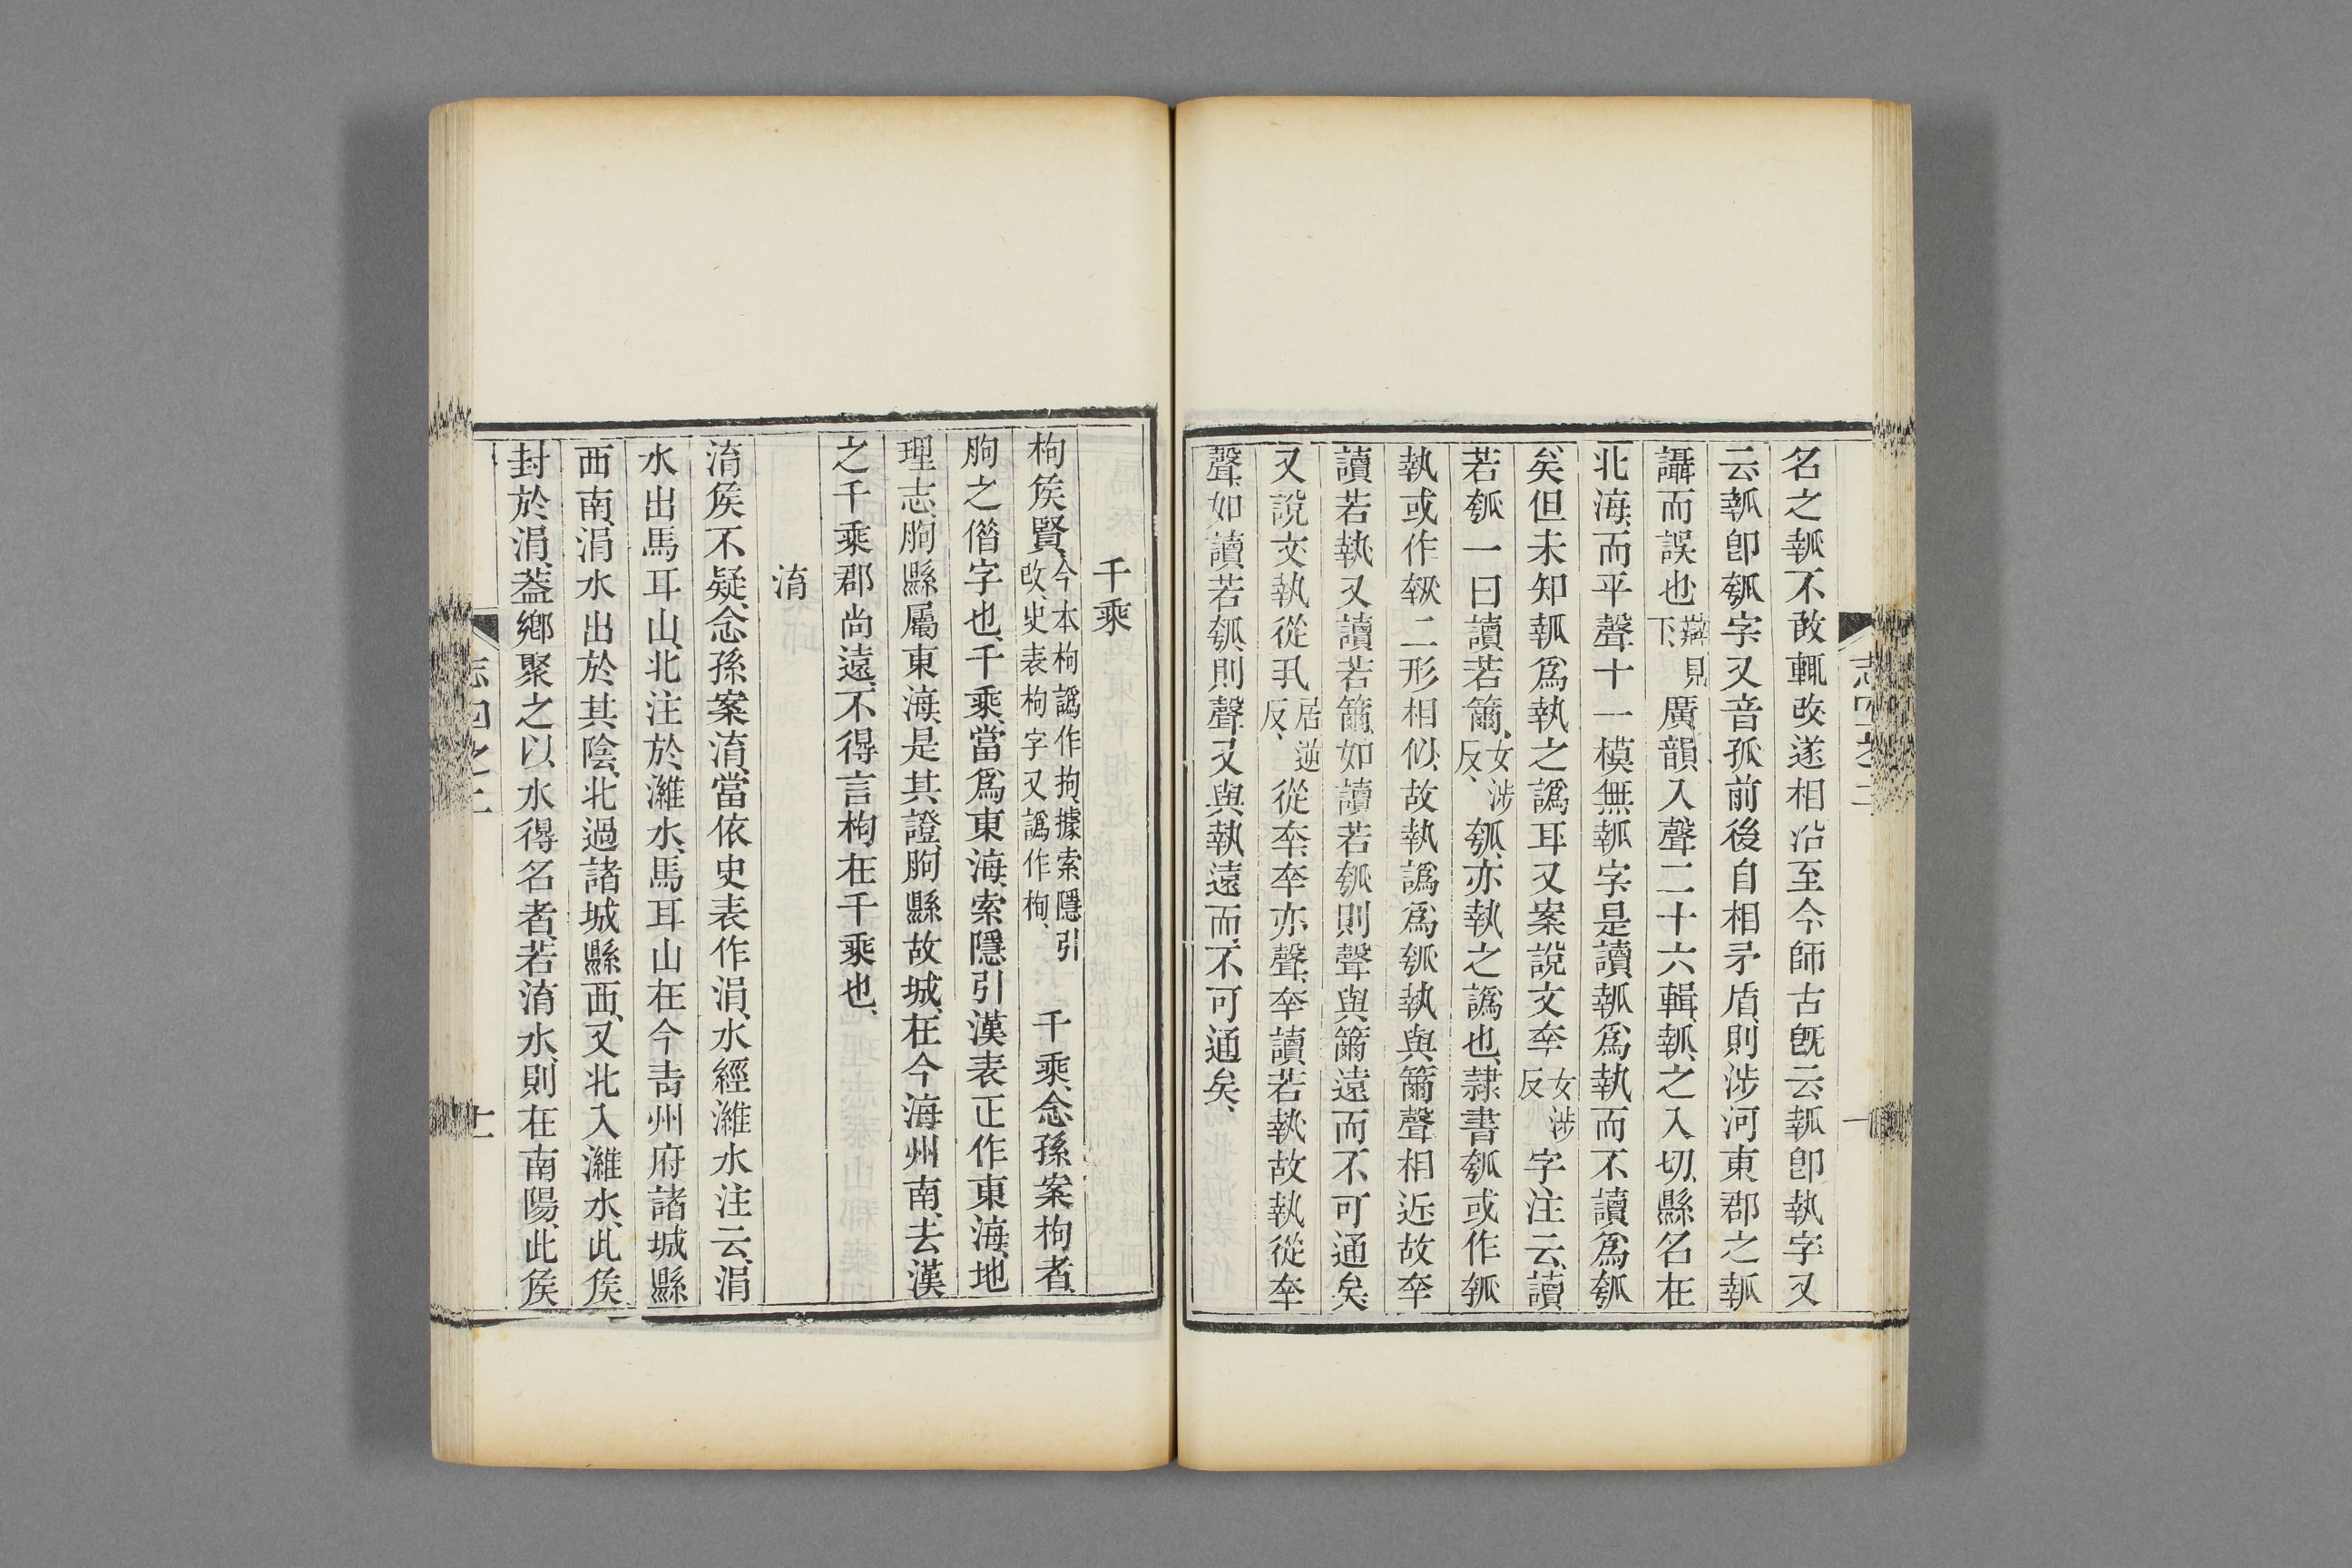 名之瓡不敢輒改遂相沿至今師古旣云瓡卽執字又
云瓡卽瓠字又音孤前後自相矛盾則涉河東郡之瓡
讘而誤也辯見下廣韻入聲二十六輯瓡之入切縣名在
北海而平聲十一模無瓡字是讀瓡爲執而不讀爲瓠
矣但未知瓡爲執之譌耳又案說文㚔女涉反字注云讀
若瓠一曰讀若籋女涉反瓠亦執之譌也隸書瓠或作
執或作二形相似故執譌爲瓠執與籋聲相近故㚔
讀若執又讀若籋如讀若瓠則聲與籋遠而不可通矣
又說文執從丮居逆反從㚔㚔亦聲㚔讀若執故執從㚔
聲如讀若瓠則聲又與執遠而不可通矣
千乘
枸矦賢今本枸譌作拘據索隱引改史表枸字又譌作栒千乘念孫案枸者
朐之借字也千乘當爲東海索隱引漢表正作東海地
理志朐縣屬東海是其證朐縣故城在今海州南去漢
之千乘郡尚遠不得言枸在千乘也
淯
淯矦不疑念孫案淯當依史表作涓水經濰水注云涓
水出馬耳山北注於濰水馬耳山在今青州府諸城縣
西南涓水出於其陰北過諸城縣西又北入濰水此矦
封於涓葢鄉聚之以水得名者若淯水則在南陽此矦
志四之二
十一